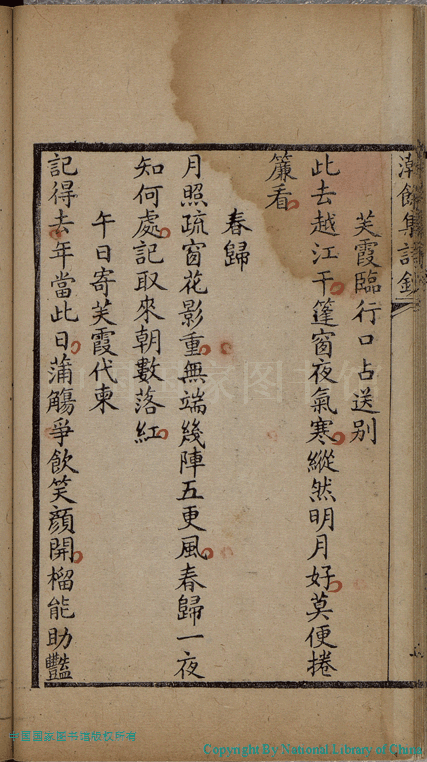 芙霞臨行口占送别
此去越江干篷窗夜氣寒縱然明月好莫便捲
簾看
春歸
月照疏窗花影重無端幾陣五更風春歸一夜
知何處記取來朝數落紅
午日寄芙霞代柬
記得去年當此日蒲觴爭飲笑顔開榴能助豔
中国国家图书馆
中国国家图书馆版权所有
Copyright By National Library of China